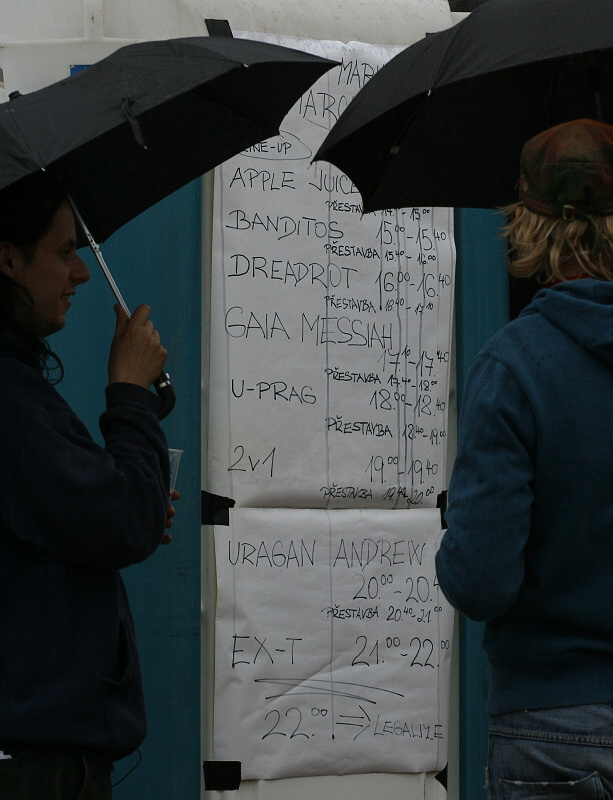 LINE-UP
APPLE JUICE
PŘESTAVBA 14.⁴⁰-15.⁰⁰
BANDITOS 15.⁰⁰-15.⁴⁰
PŘESTAVBA 15.⁴⁰-16.⁰⁰
DREADROT 16.⁰⁰-16.⁴⁰
PŘESTAVBA 16.⁴⁰-17.¹⁰
GAIA MESSIAH
17.¹⁰-17.⁴⁰
PŘESTAVBA 17.⁴⁰-18.⁰⁰
U-PRAG 18.⁰⁰-18.⁴⁰
PŘESTAVBA 18.⁴⁰-19.⁰⁰
2v1 19.⁰⁰-19.⁴⁰
PŘESTAVBA 19.⁴⁰-20.⁰⁰
URAGAN ANDREW
20.⁰⁰-20.⁴
PŘESTAVBA 20.⁴⁰-21.⁰⁰
EX-T 21.⁰⁰-22.⁰⁰
22.⁰⁰ => LEGALIZE